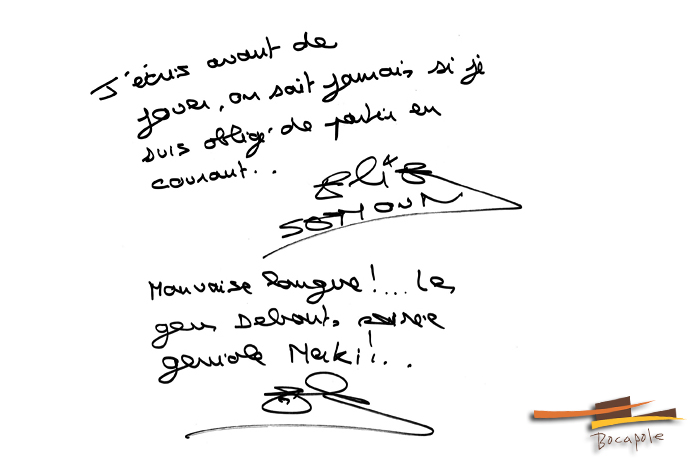 J'écris avant de
jouer, on sait jamais si je
suis obligé de partir en
courant..
Elie
SEMOUN
Mauvaise langue!... Les
gens Debouts, soirée
geniale Merki!..
Bocapole